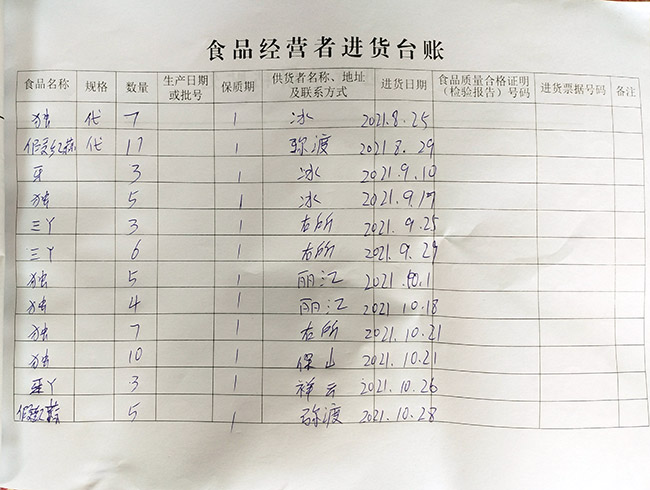 食品经营者进货台账
食品名称 规格 数量 生产日期或批号 保质期 供货者名称、地址及联系方式 进货日期 食品质量合格证明(检验报告)号码 进货票据号码 备注
独 代 7 1 冰 2021.8.25
代 17 1 弥渡 2021 8.29
牙 3 1 冰 2021.9.10
独 5 1 冰 2021.9.17
三丫 3 1 右所 2021.9.25
三丫 6 1 右所 2021.9.29
独 5 1 丽江 2021.10.1
独 4 1 丽江 2021 10.18
独 7 1 右所 2021.10.21
独 10 1 保山 2021.10.21
丫 3 1 祥云 2021.10.26
5 1 弥渡 2021.10.28